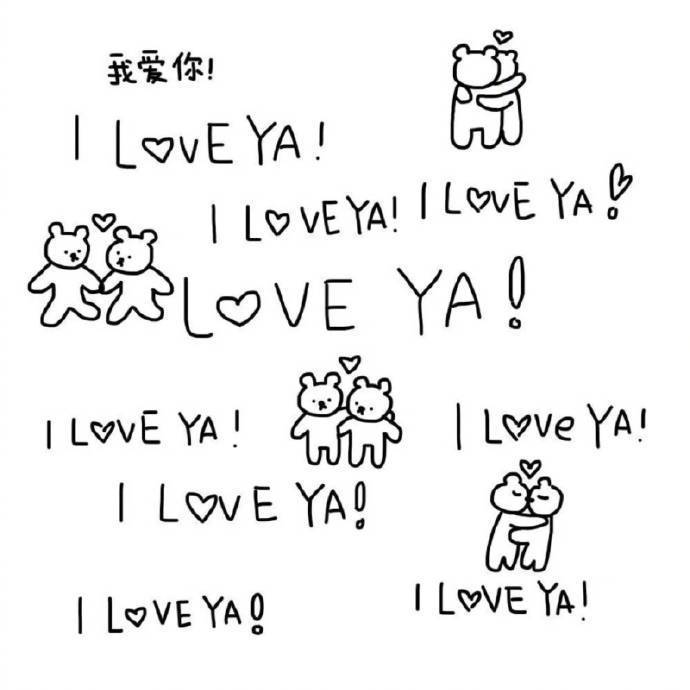 我爱你!
I LOVE YA!
I LOVE YA! I LOVE YA!
LOVE YA!
I LOVE YA!
I LOVe YA!
I LOVE YA!
I LOVE YA!
I LOVE YA!